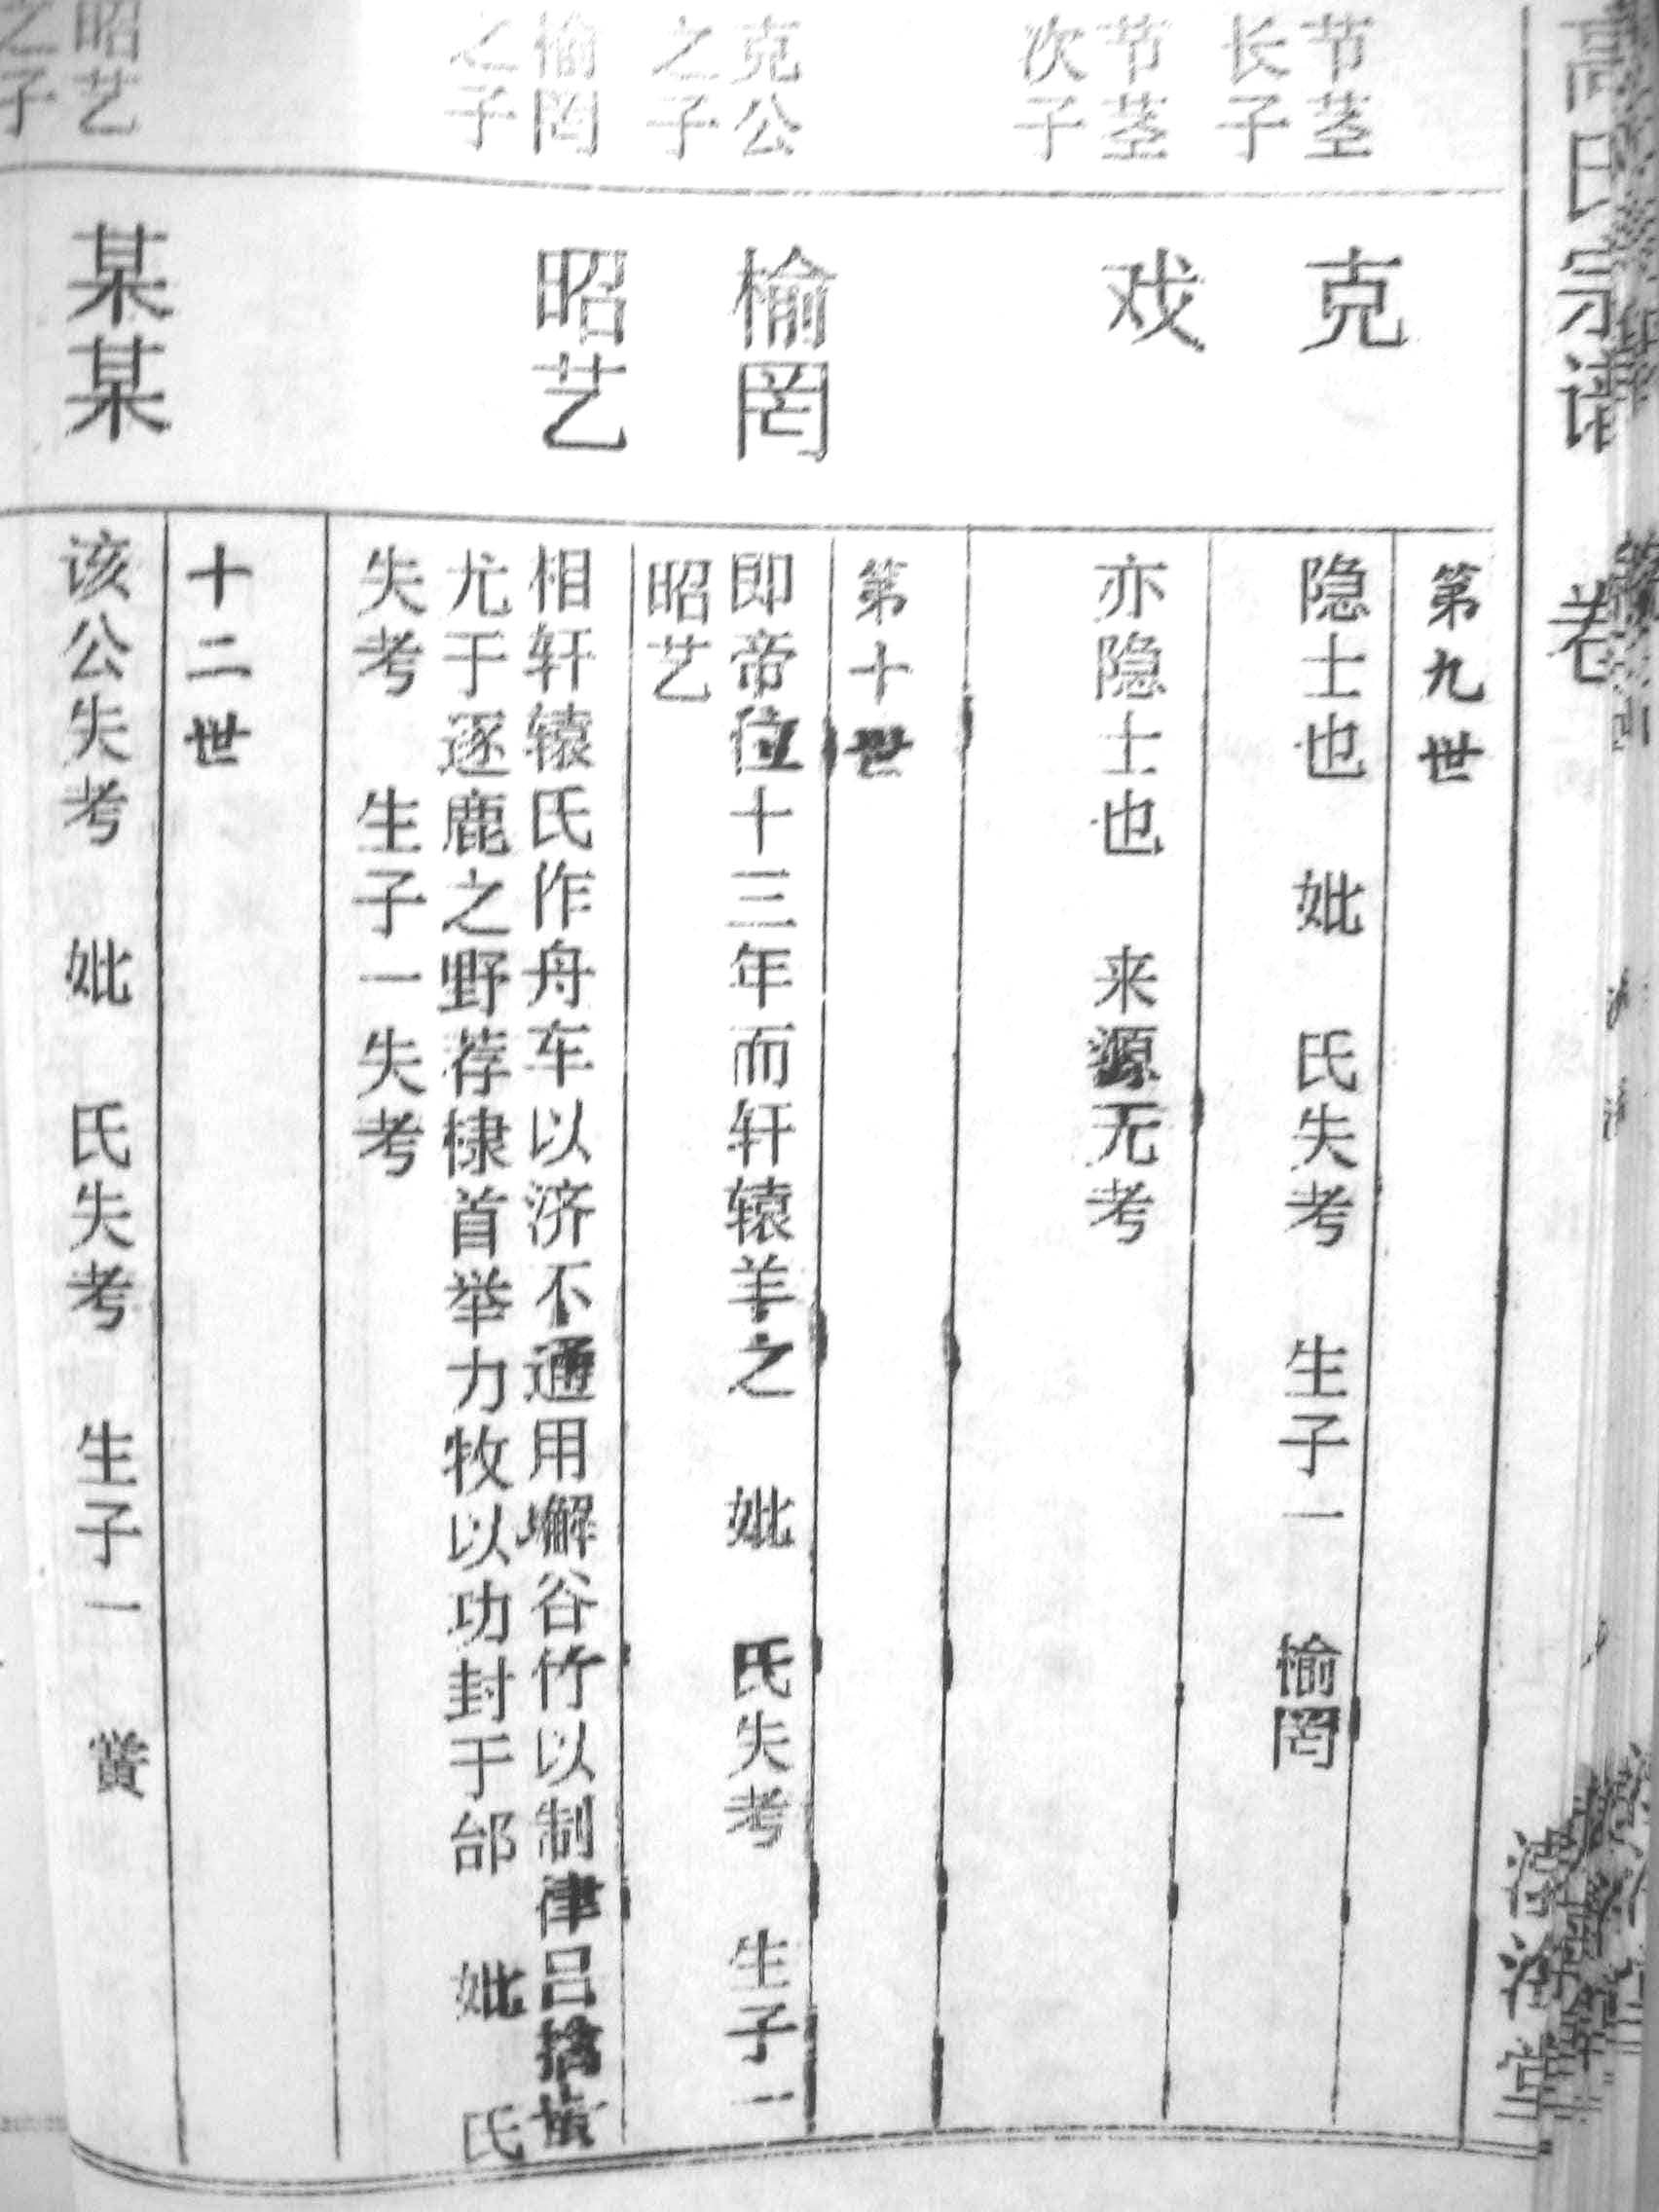 高氏宗谱 卷
第九世
节茎
长子
克
隐士也 妣 氏失考 生子一 榆罔
节茎
次子
戏
亦隐士也 来源无考
第十世
克公
之子
榆罔
即帝位十三年而轩辕羊之 妣 氏失考 生子一
昭艺
榆罔
之子
昭艺
相轩辕氏作舟车以济不通用嶰谷竹以制律吕擒蚩
尤于逐鹿之野荐棣首举力牧以功封于邰 妣 氏
失考 生子一失考
十二世
昭艺
之子
某某
该公失考 妣 氏失考 生子一 黉